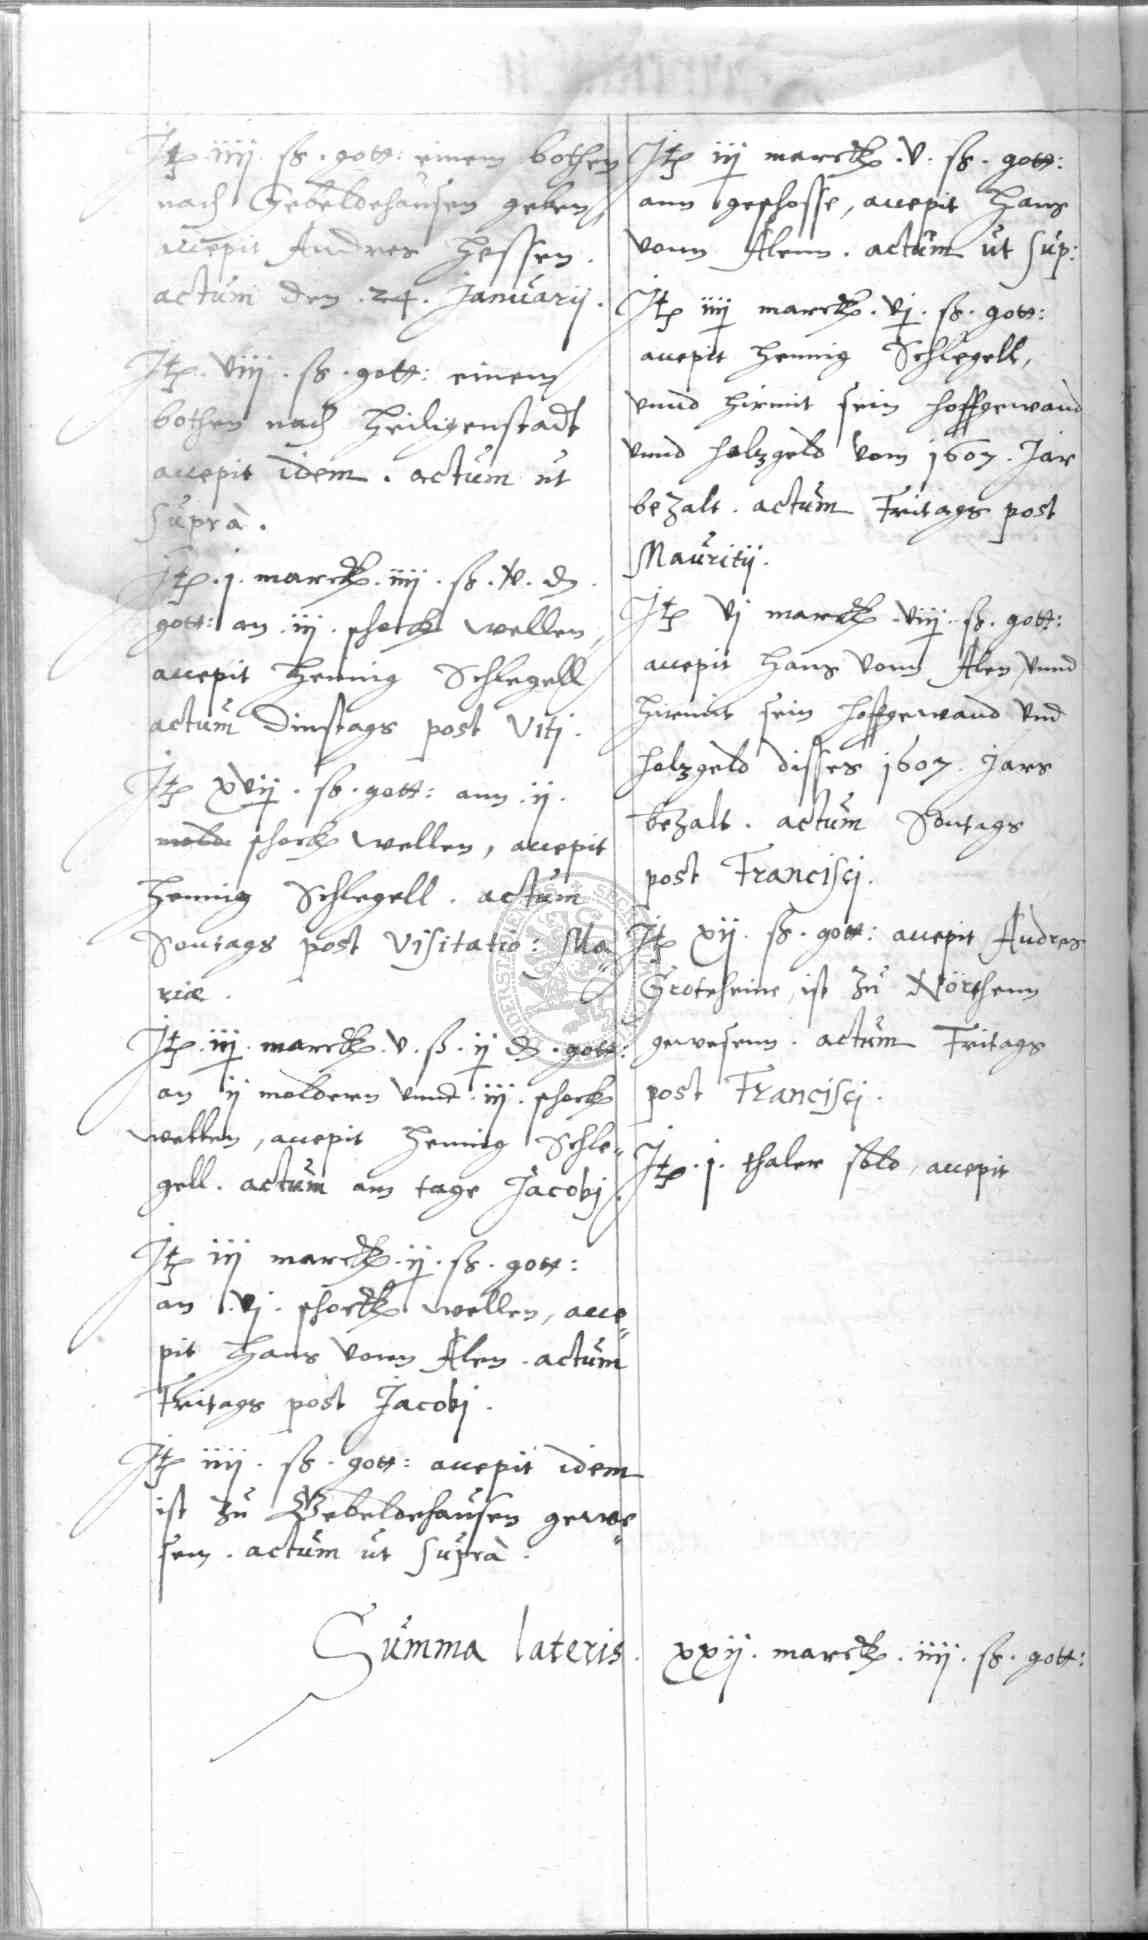 Itz. iiij. ß. gott: einem bothen
nach Gebeldehausen geben,
accepit Andres Hessen.
actum den .24. Januarij.
Itz. viij. ß. gott: einem
bothen nach Heiligenstadt
accepit idem. actum ut
supra.
Itz. j. marck. iiij. ß. v. d.
gott: an .iij. schock wellen,
accepit Hennig Schlegell
actum Dinstags post Viti.
Itz xvij. ß. gott: ann .ij.
schock wellen, accepit
Hennig Schlegell. actum
Sontags post Visitatio: Ma„
riæ.
Itz. iij. marck. v. ß. ij d. gott:
an ij moldern unnd .iij. schock
wellen, accepit Hennig Schle„
gell. actum am tage Jacobj.
Itz iij marck. ij. ß. gott:
an .vj. schock wellen, acce„
pit Hans vonn Alen. actum
Fritags post Jacobj.
Itz iiij. ß. gott: accepit idem
ist zu Gebeldehausen gewe„
sen. actum ut supra.
Itz iij marck. v. ß. gott:
ann geschosse, accepit Hans
vonn Alenn. actum ut sup:
Itz iiij marck. vj. ß. gott:
accepit Hennig Schlegell,
unnd hirmit sein hoffgewand
unnd holzgeld vom 1607. Jar
bezalt. actum Fritags post
Mauritij.
Itz vj marck. viij. ß. gott:
accepit Hans vonn Alen, unnd
hirmit sein hoffgewand und
holzgeld disses 1607. Jars
bezalt. actum Sontags
post Francisci.
Itz xij. ß. gott: accepit Andres
Groteheine, ist zu Northeim
gewesenn. actum Fritags
post Francisci.
Itz. j. thaler sold, accepit
Summa lateris. xxij. marck. iiij. ß. gott: